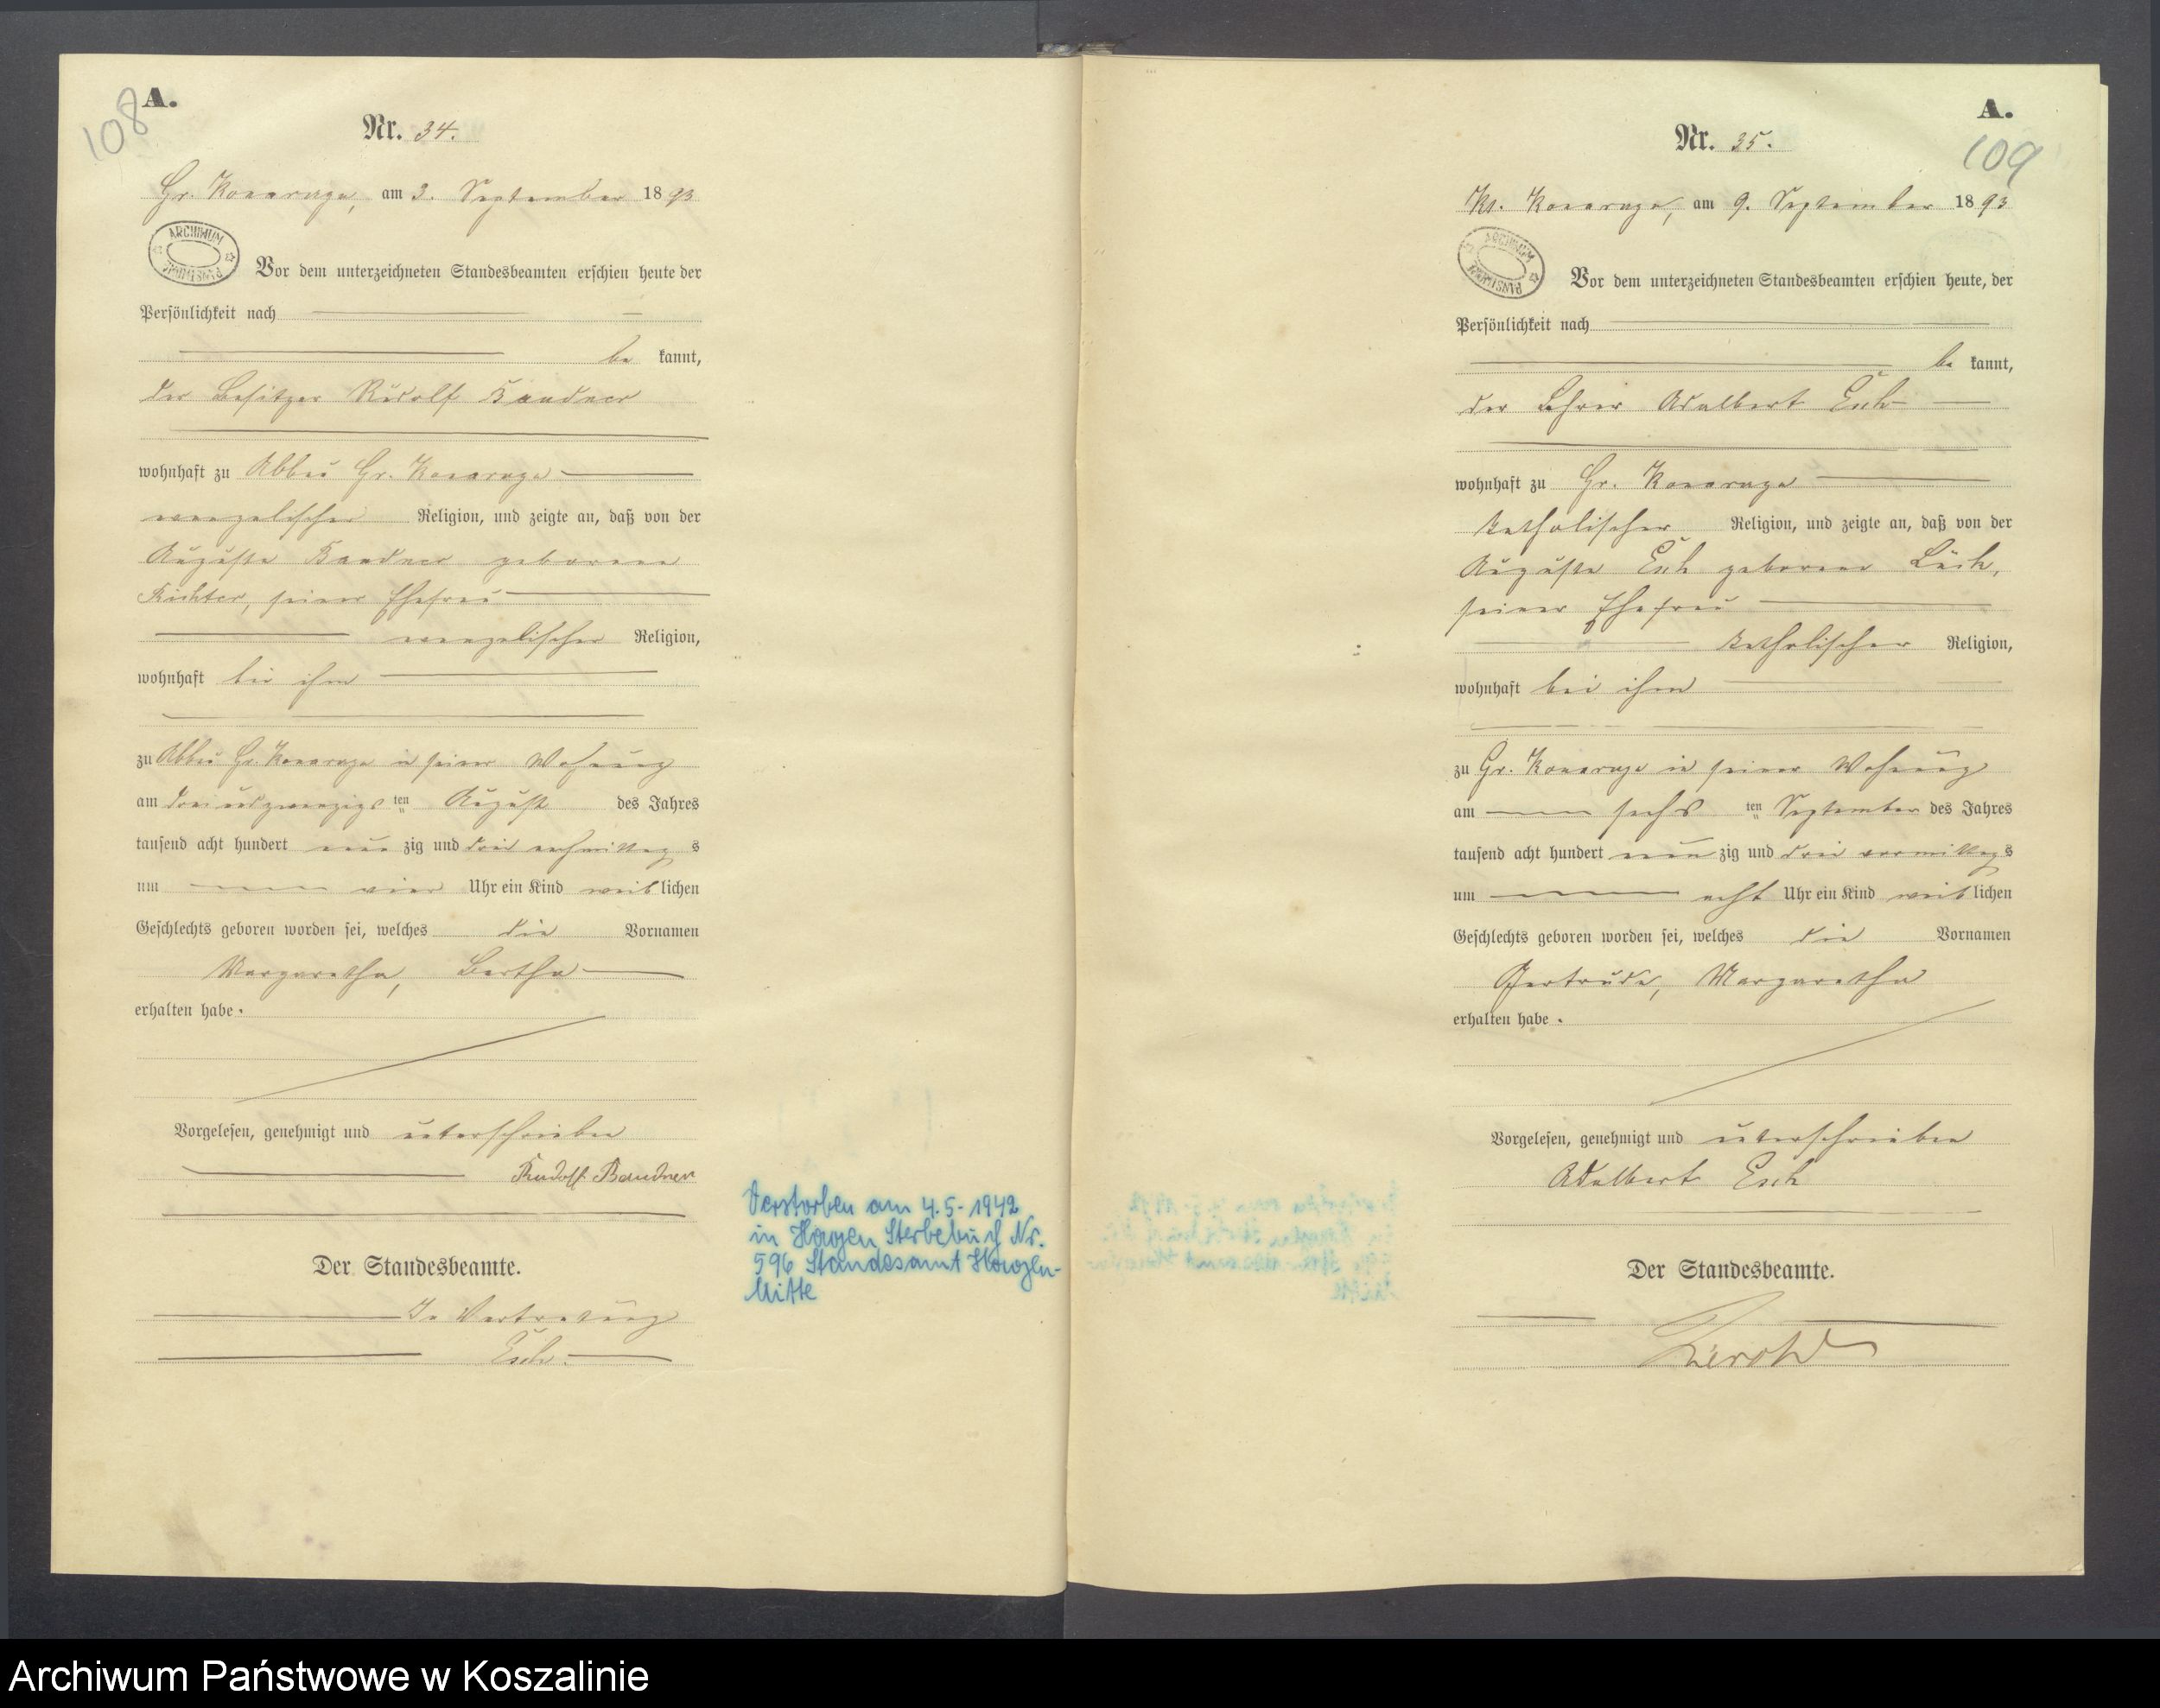 108
A.
Nr. 34.
Gr. Konarczyn, am 3. September 1893
ARCHIWUM
PAŃSTWOWE
Vor dem unterzeichneten Standesbeamten erschien heute der
Persönlichkeit nach
be kannt,
der Besitzer Rudolf Bandner
wohnhaft zu Abbau Gr.
evangelischer Religion, und zeigte an, daß von der
Auguste Bandner geborene
Richter, seiner Ehefrau
evangelischer Religion,
wohnhaft bei ihm
zu Abbau Gr. in seiner Wohnung
am drei und zwanzigsten August des Jahres
tausend acht hundert neunzig und drei nachmittags
um vier Uhr ein Kind weiblichen
Geschlechts geboren worden sei, welches die Vornamen
Margaretha, Bertha
erhalten habe.
Vorgelesen, genehmigt und unterschrieben
Rudolf Bandner
Der Standesbeamte.
In Vertretung
Esch.
Verstorben am 4.5.1942
in Hagen Sterbebuch Nr.
596 Standesamt Hagen-
Mitte
A.
109
Nr. 35.
Kl. am 9. September 1893
ARCHIWUM
PAŃSTWOWE
Vor dem unterzeichneten Standesbeamten erschien heute, der
Persönlichkeit nach
be kannt,
der Lehrer Adalbert Esch
wohnhaft zu Gr.
katholischer Religion, und zeigte an, daß von der
Auguste Esch geborene
seiner Ehefrau
katholischer Religion,
wohnhaft bei ihm
zu Gr. in seiner Wohnung
am sechsten September des Jahres
tausend acht hundert neunzig und drei vormittags
um acht Uhr ein Kind weiblichen
Geschlechts geboren worden sei, welches die Vornamen
Gertrude, Margaretha
erhalten habe.
Vorgelesen, genehmigt und unterschrieben
Adalbert Esch
Der Standesbeamte.
Archiwum Państwowe w Koszalinie